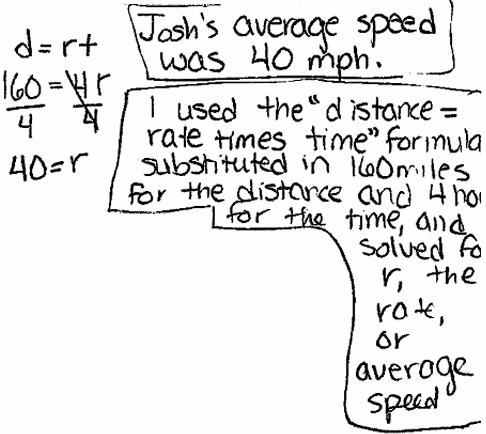 d = rt
160 = 4r
4 4
40 = r
Josh's average speed
was 40 mph.
I used the "distance =
rate times time" formula
substituted in 160 miles
for the distance and 4 hou
for the time, and
solved fo
r, the
rate,
or
average
speed